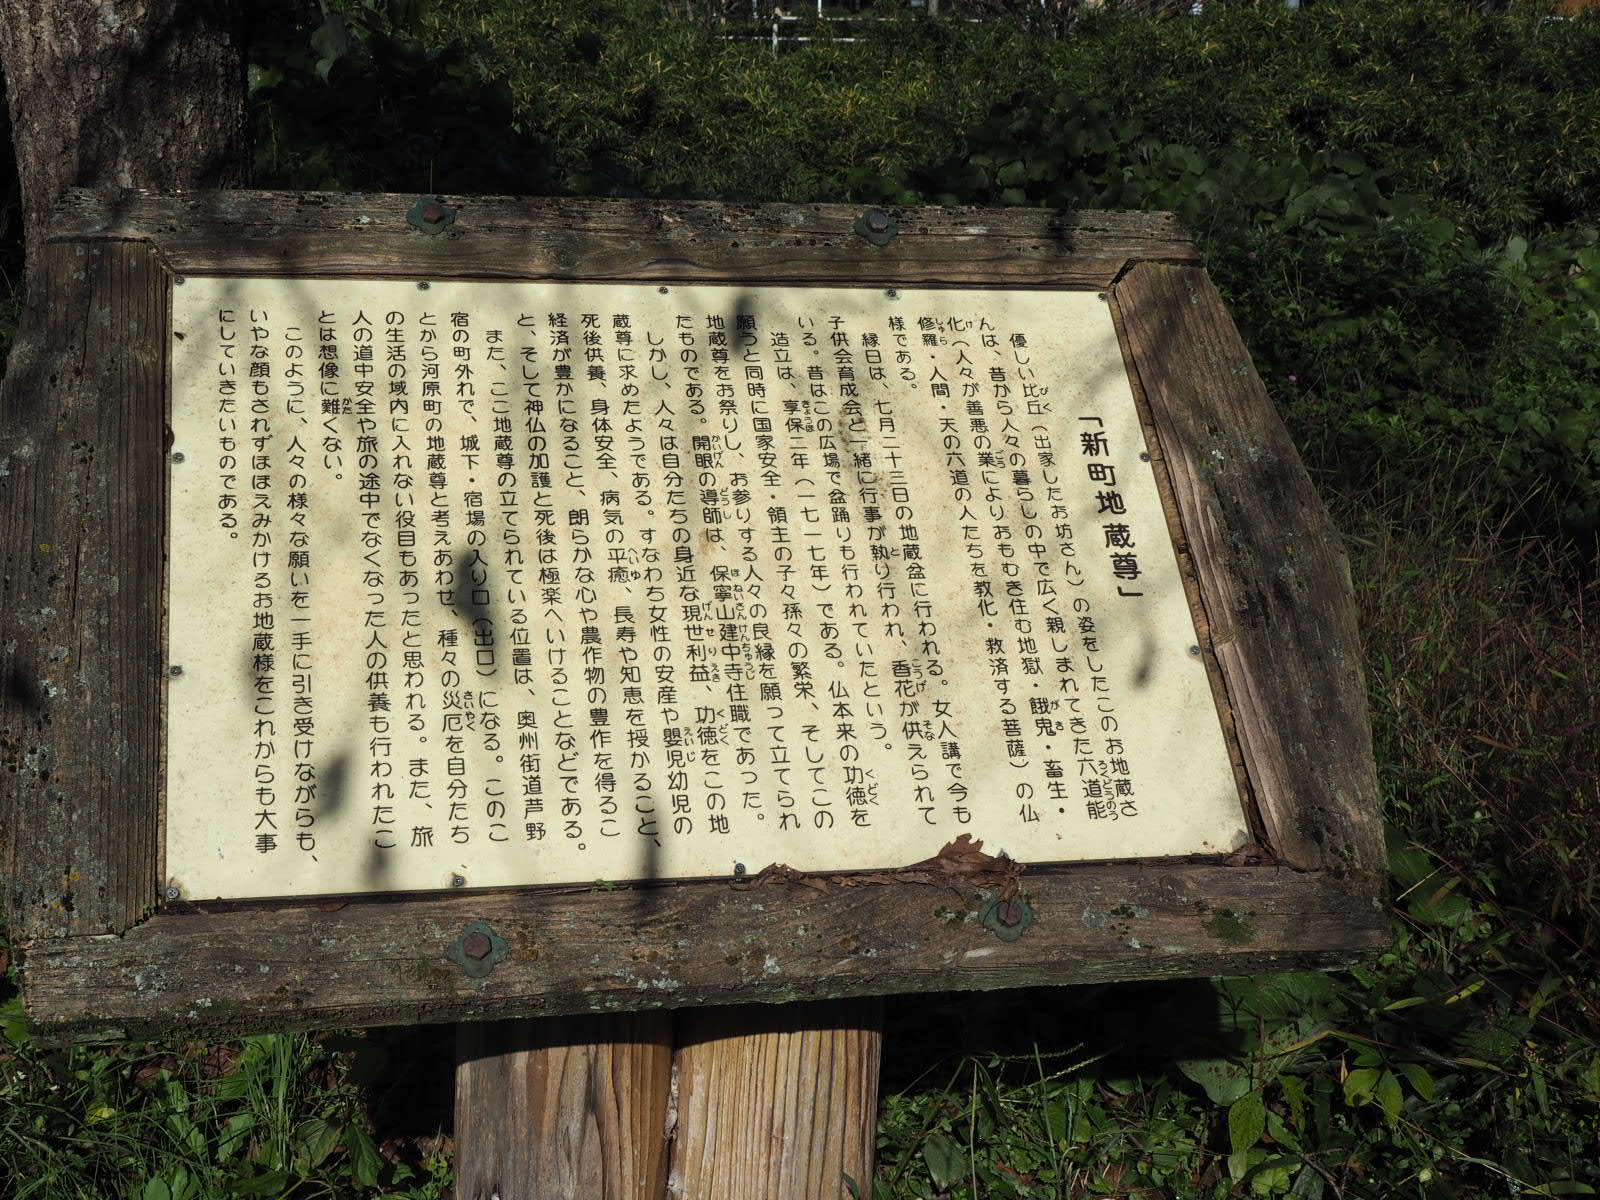 「新町地蔵尊」
優しい比丘(出家したお坊さん)の姿をしたこのお地蔵さ
んは、昔から人々の暮らしの中で広く親しまれてきた六道能
化(人々が善悪の業によりおもむき住む地獄・餓鬼・畜生・
修羅・人間・天の六道の人たちを教化・救済する菩薩)の仏
様である。
縁日は、七月二十三日の地蔵盆に行われる。女人講で今も
子供会育成会と一緒に行事が執り行われ、香花が供えられて
いる。昔はこの広場で盆踊りも行われていたという。
造立は、享保二年(一七一七年)である。仏本来の功徳を
願うと同時に国家安全・領主の子々孫々の繁栄、そしてこの
地蔵尊をお祭りし、お参りする人々の良縁を願って立てられ
たものである。開眼の導師は、保寧山建中寺住職であった。
しかし、人々は自分たちの身近な現世利益、功徳をこの地
蔵尊に求めたようである。すなわち女性の安産や嬰児幼児の
死後供養、身体安全、病気の平癒、長寿や知恵を授かること、
経済が豊かになること、朗らかな心や農作物の豊作を得るこ
と、そして神仏の加護と死後は極楽へいけることなどである。
また、ここ地蔵尊の立てられている位置は、奥州街道芦野
宿の町外れで、城下・宿場の入り口(出口)になる。このこ
とから河原町の地蔵尊と考えあわせ、種々の災厄を自分たち
の生活の域内に入れない役目もあったと思われる。また、旅
人の道中安全や旅の途中でなくなった人の供養も行われたこ
とは想像に難くない。
このように、人々の様々な願いを一手に引き受けながらも、
いやな顔もされずほほえみかけるお地蔵様をこれからも大事
にしていきたいものである。